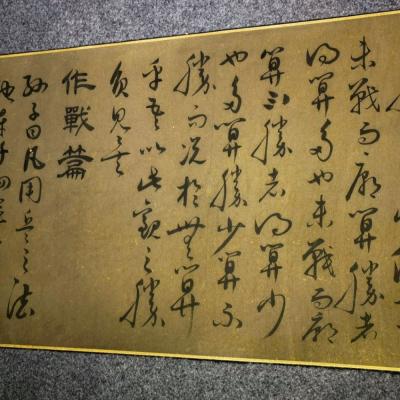 未戰而廟算勝者
得算多也未戰而廟
算不勝者得算少
也多算勝少算不
勝而況於無算
乎吾以此觀之勝
負見矣
作戰篇
孫子曰凡用兵之法